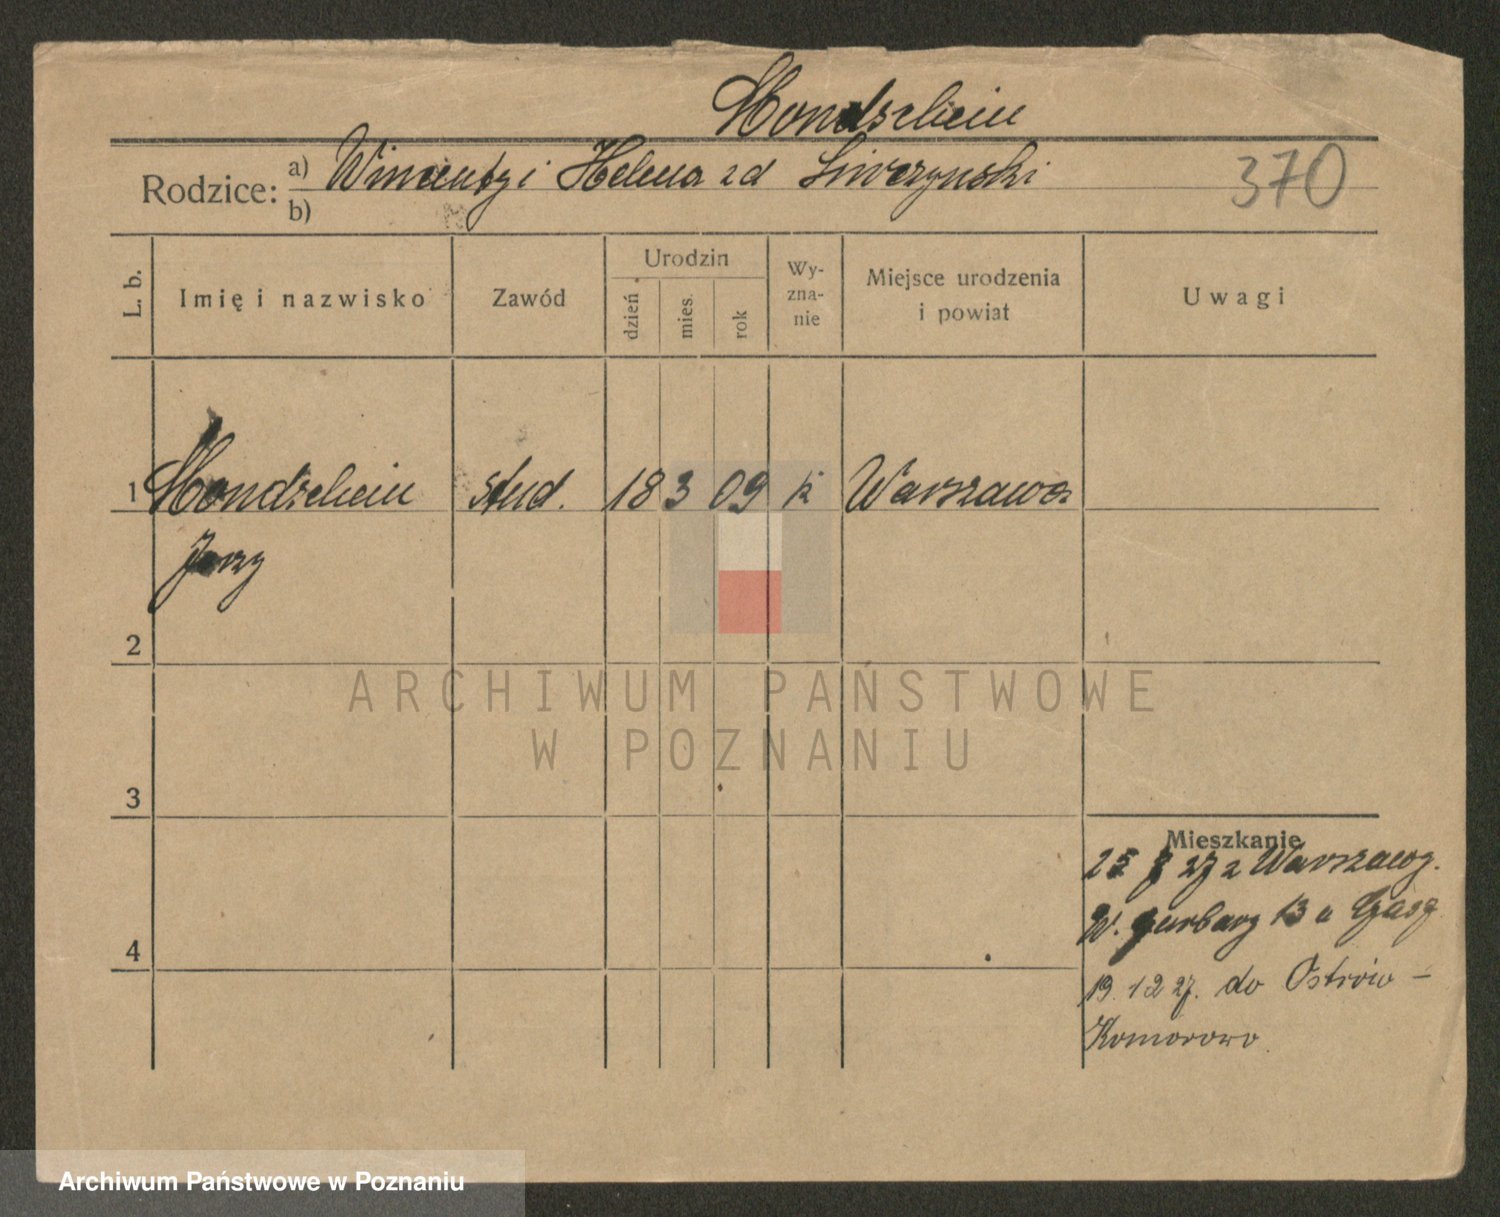 Mondschein
Rodzice: a) Wincenty i Helena zd
b)
370
L. b.
Imię i nazwisko
Zawód
Urodzin
dzień
mies.
rok
Wy-
zna-
nie
Miejsce urodzenia
i powiat
Uwagi
1 Mondschein stud. 18 3 09 k Warszawa
Jerzy
2
ARCHIWUM PAŃSTWOWE
W POZNANIU
3
Mieszkanie
25 27 z Warszawy.
W. Garbary 13 u
4
19. 12 27. do Ostrów -
Komorowo
Archiwum Państwowe w Poznaniu